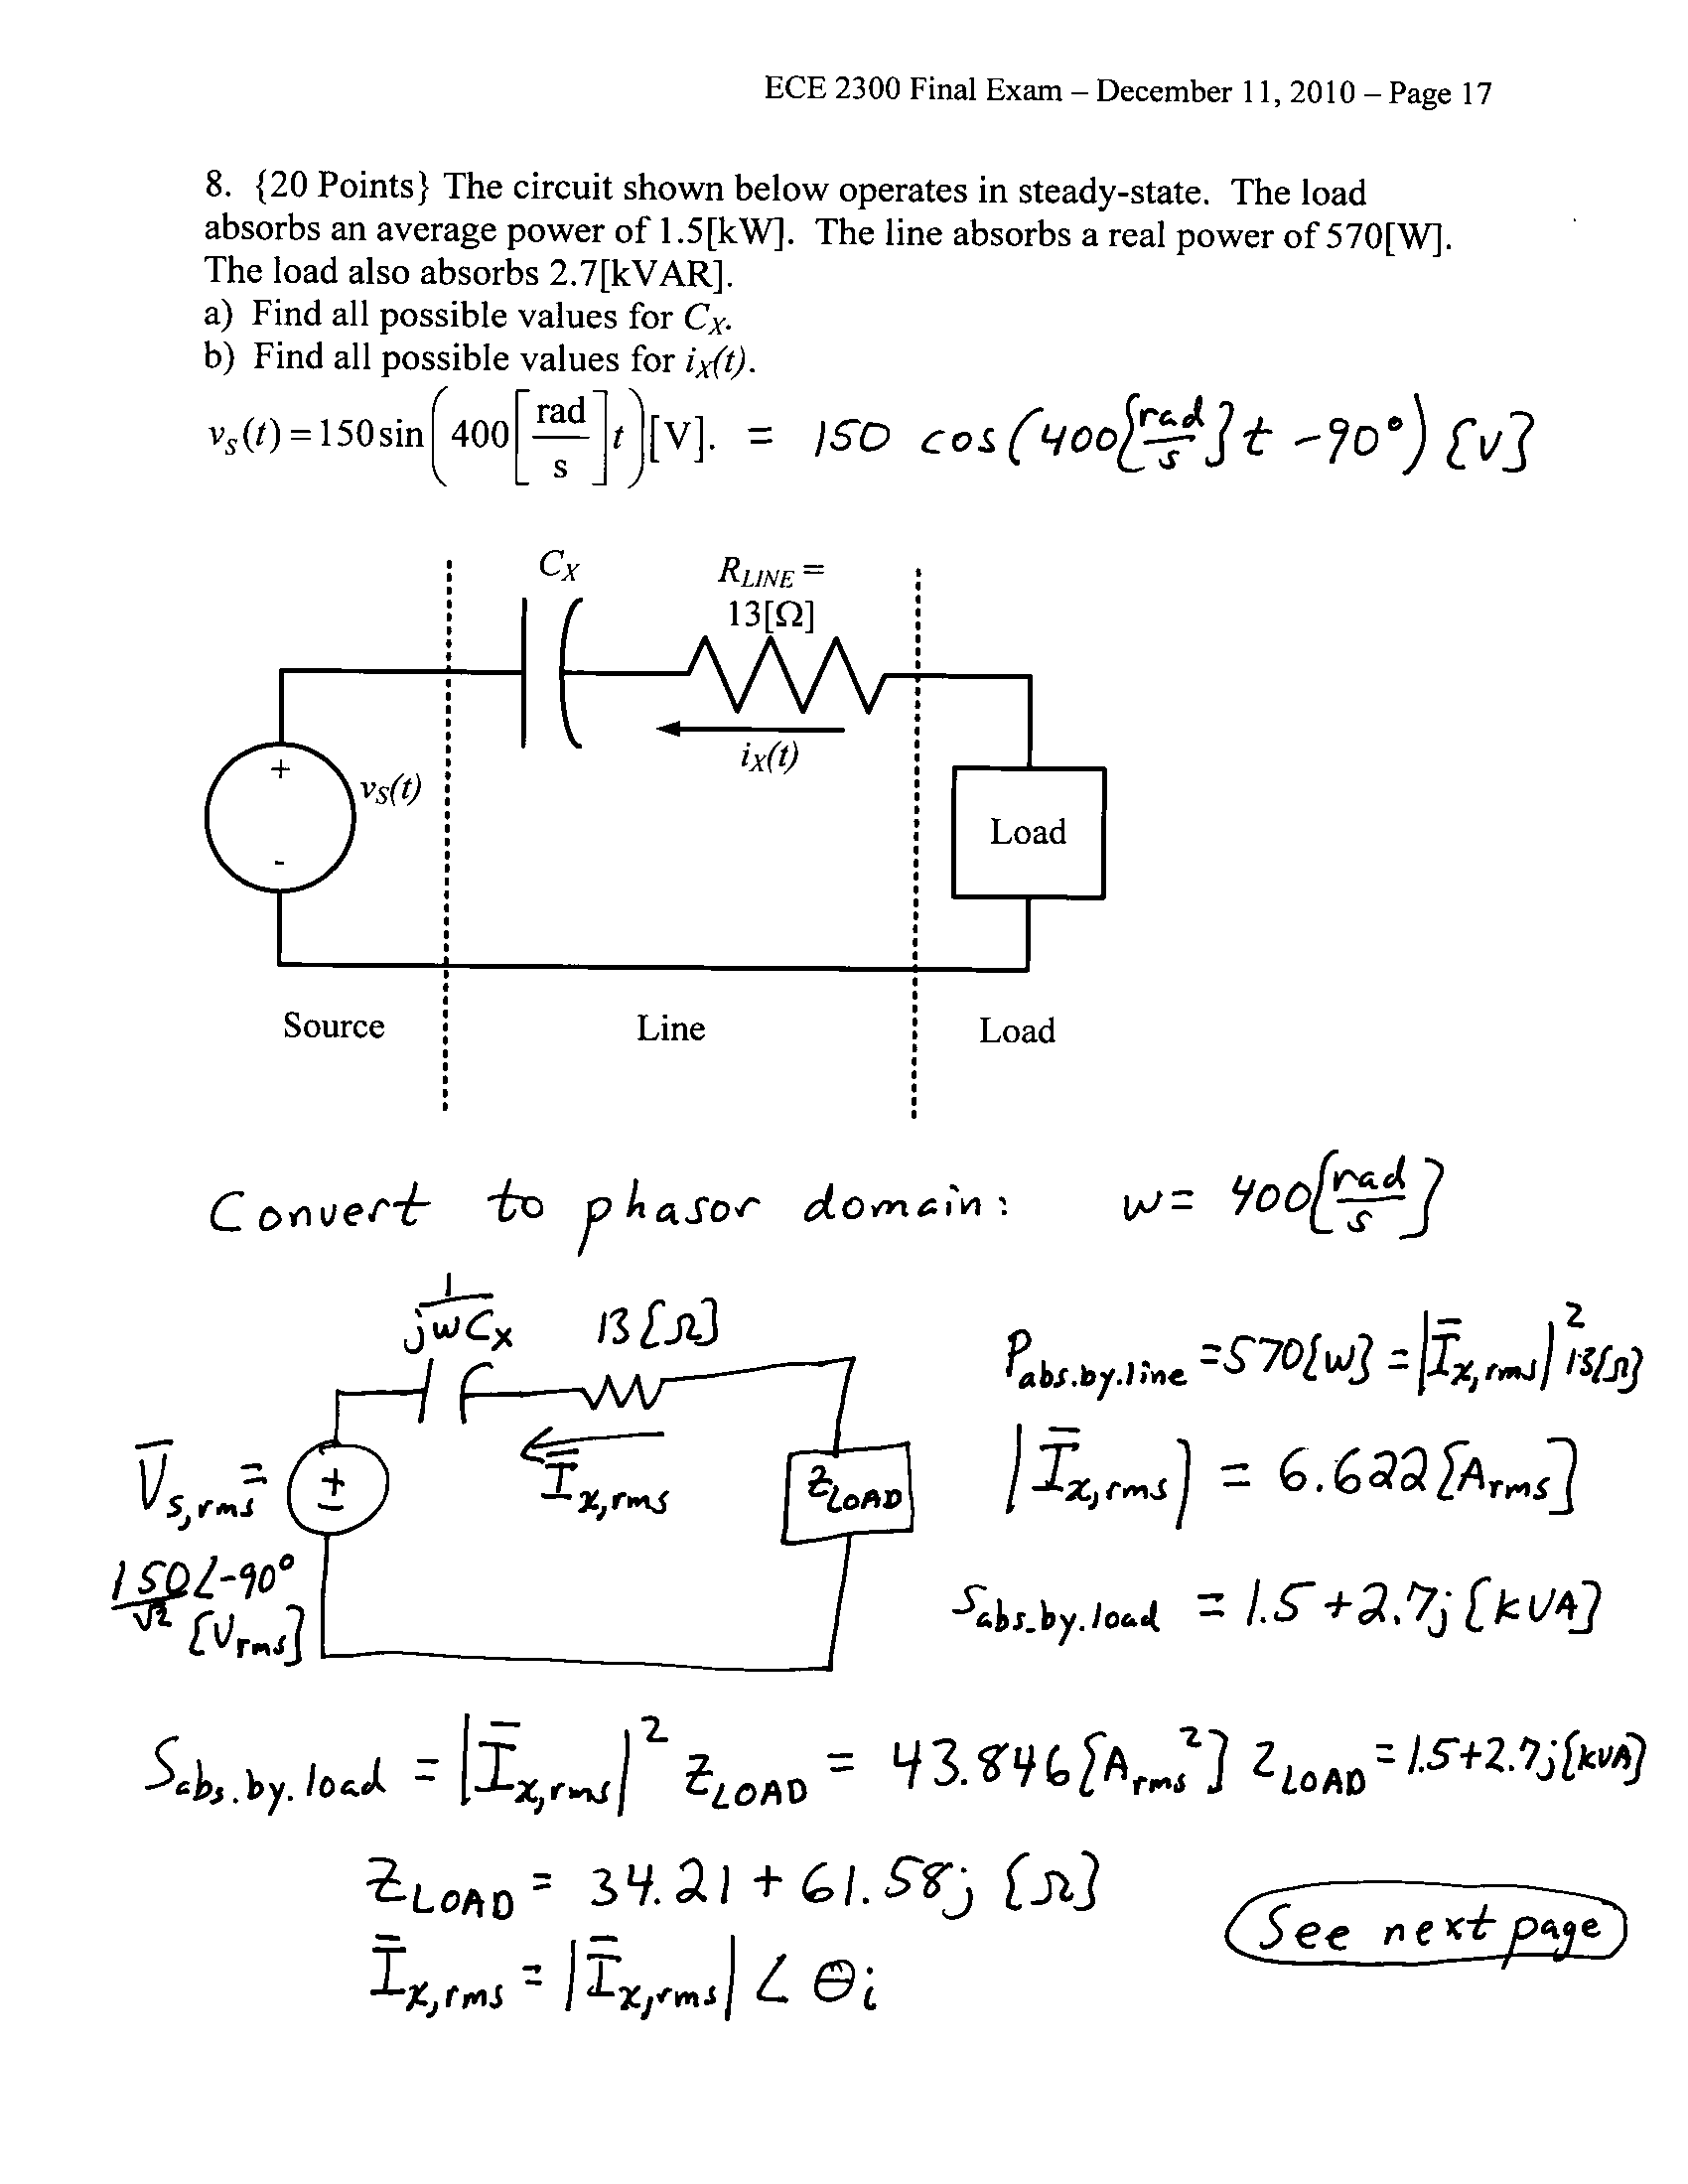 ECE 2300 Final Exam – December 11, 2010 – Page 17
8. {20 Points} The circuit shown below operates in steady-state. The load
absorbs an average power of 1.5[kW]. The line absorbs a real power of 570[W].
The load also absorbs 2.7[kVAR].
a) Find all possible values for C_X.
b) Find all possible values for i_X(t).
v_S(t) = 150 sin(400[rad/s]t)[V]. = 150 cos(400[rad/s]t -90°) [V]
C_X
R_LINE =
13[Ω]
i_X(t)
+
v_S(t)
-
Load
Source Line Load
Convert to phasor domain: w = 400[rad/s]
1/jwC_x 13[Ω]
P_abs.by.line = 570[W] = |I̅_x,rms|² 13[Ω]
V̅_s,rms = 150∠-90°/√2 [Vrms]
+
-
I̅_x,rms
Z_LOAD
|I̅_x,rms| = 6.622[Arms]
S_abs.by.load = 1.5 + 2.7j [kVA]
S_abs.by.load = |I̅_x,rms|² Z_LOAD = 43.846[Arms²] Z_LOAD = 1.5+2.7j[kVA]
Z_LOAD = 34.21 + 61.58j [Ω]
See next page
I̅_x,rms = |I̅_x,rms| ∠ θ_i